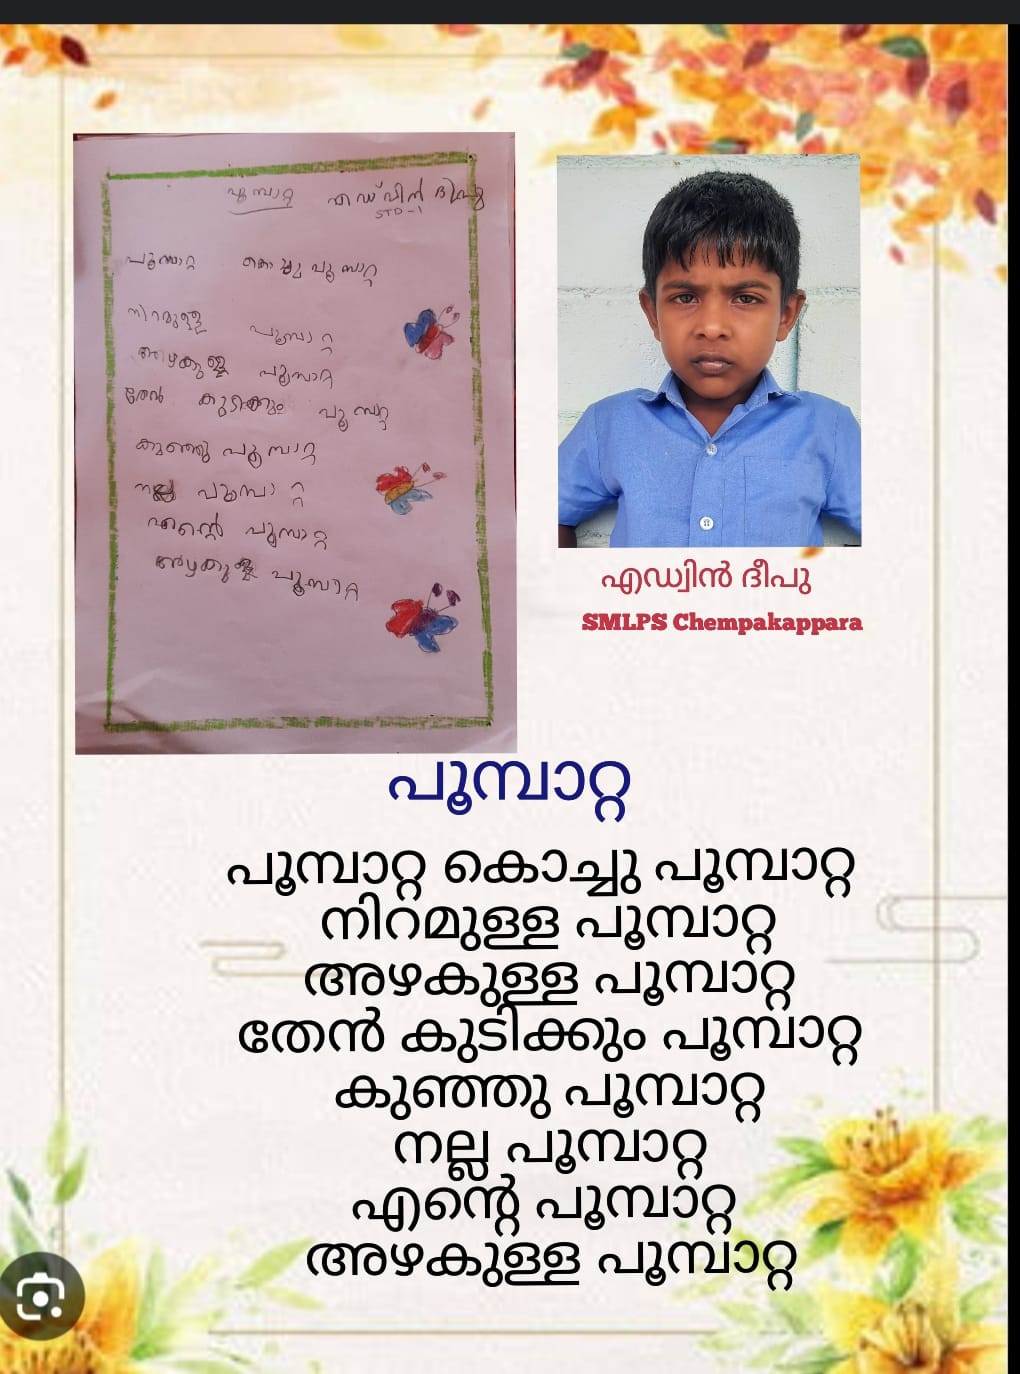 പൂമ്പാറ്റ എഡ്വിൻ ദീപു
STD-1
പൂമ്പാറ്റ കൊച്ചു പൂമ്പാറ്റ
നിറമുള്ള പൂമ്പാറ്റ
അഴകുള്ള പൂമ്പാറ്റ
തേൻ കുടിക്കും പൂമ്പാറ്റ
കുഞ്ഞു പൂമ്പാറ്റ
നല്ല പൂമ്പാറ്റ
എന്റെ പൂമ്പാറ്റ
അഴകുള്ള പൂമ്പാറ്റ
എഡ്വിൻ ദീപു
SMLPS Chempakappara
പൂമ്പാറ്റ
പൂമ്പാറ്റ കൊച്ചു പൂമ്പാറ്റ
നിറമുള്ള പൂമ്പാറ്റ
അഴകുള്ള പൂമ്പാറ്റ
തേൻ കുടിക്കും പൂമ്പാറ്റ
കുഞ്ഞു പൂമ്പാറ്റ
നല്ല പൂമ്പാറ്റ
എന്റെ പൂമ്പാറ്റ
അഴകുള്ള പൂമ്പാറ്റ